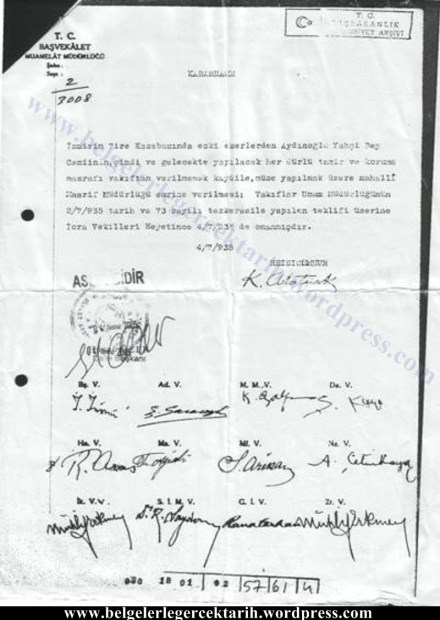 T. C.
BAŞVEKÂLET
MUAMELÂT MÜDÜRLÜĞÜ
Şube :
Sayı :
2
3008
T. C.
BAŞBAKANLIK
CUMHURİYET ARŞİVİ
KARARNAME
İzmirin Tire Kazabasında eski eserlerden Aydınoğlu Yahşi Bey
Camiinin, şimdi ve gelecekte yapılacak her türlü tamir ve koruma
masrafı vakıftan verilmemek kaydile, müze yapılmak üzere mahallî
Maarif Müdürlüğü emrine verilmesi; Vakıflar Umum Müdürlüğünün
2/7/935 tarih ve 73 sayılı tezkeresile yapılan teklifi üzerine
İcra Vekilleri Heyetince 4/7/935 de onanmıştır.
4/7/935
REİSİCUMHUR
K. Atatürk
AS DİR
Bş. V. Ad. V. M. M. V. Da. V.
Ha. V. Ma. V. Mf. V. Na. V.
İk. V. S. İ. M. V. G. İ. V. Zr. V.
030 18 01 02 57 61 4
www.belgelerlegercektarih.wordpress.com
www.belgelerlegercektarih.wordpress.com